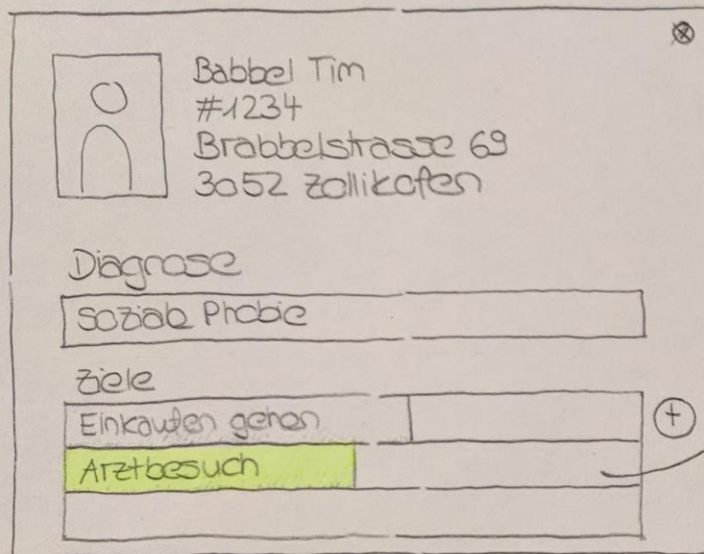 Babbel Tim
#1234
Brabbelstrasse 69
3052 Zollikofen
Diagnose
Soziale Phobie
Ziele
Einkaufen gehen
+
Arztbesuch